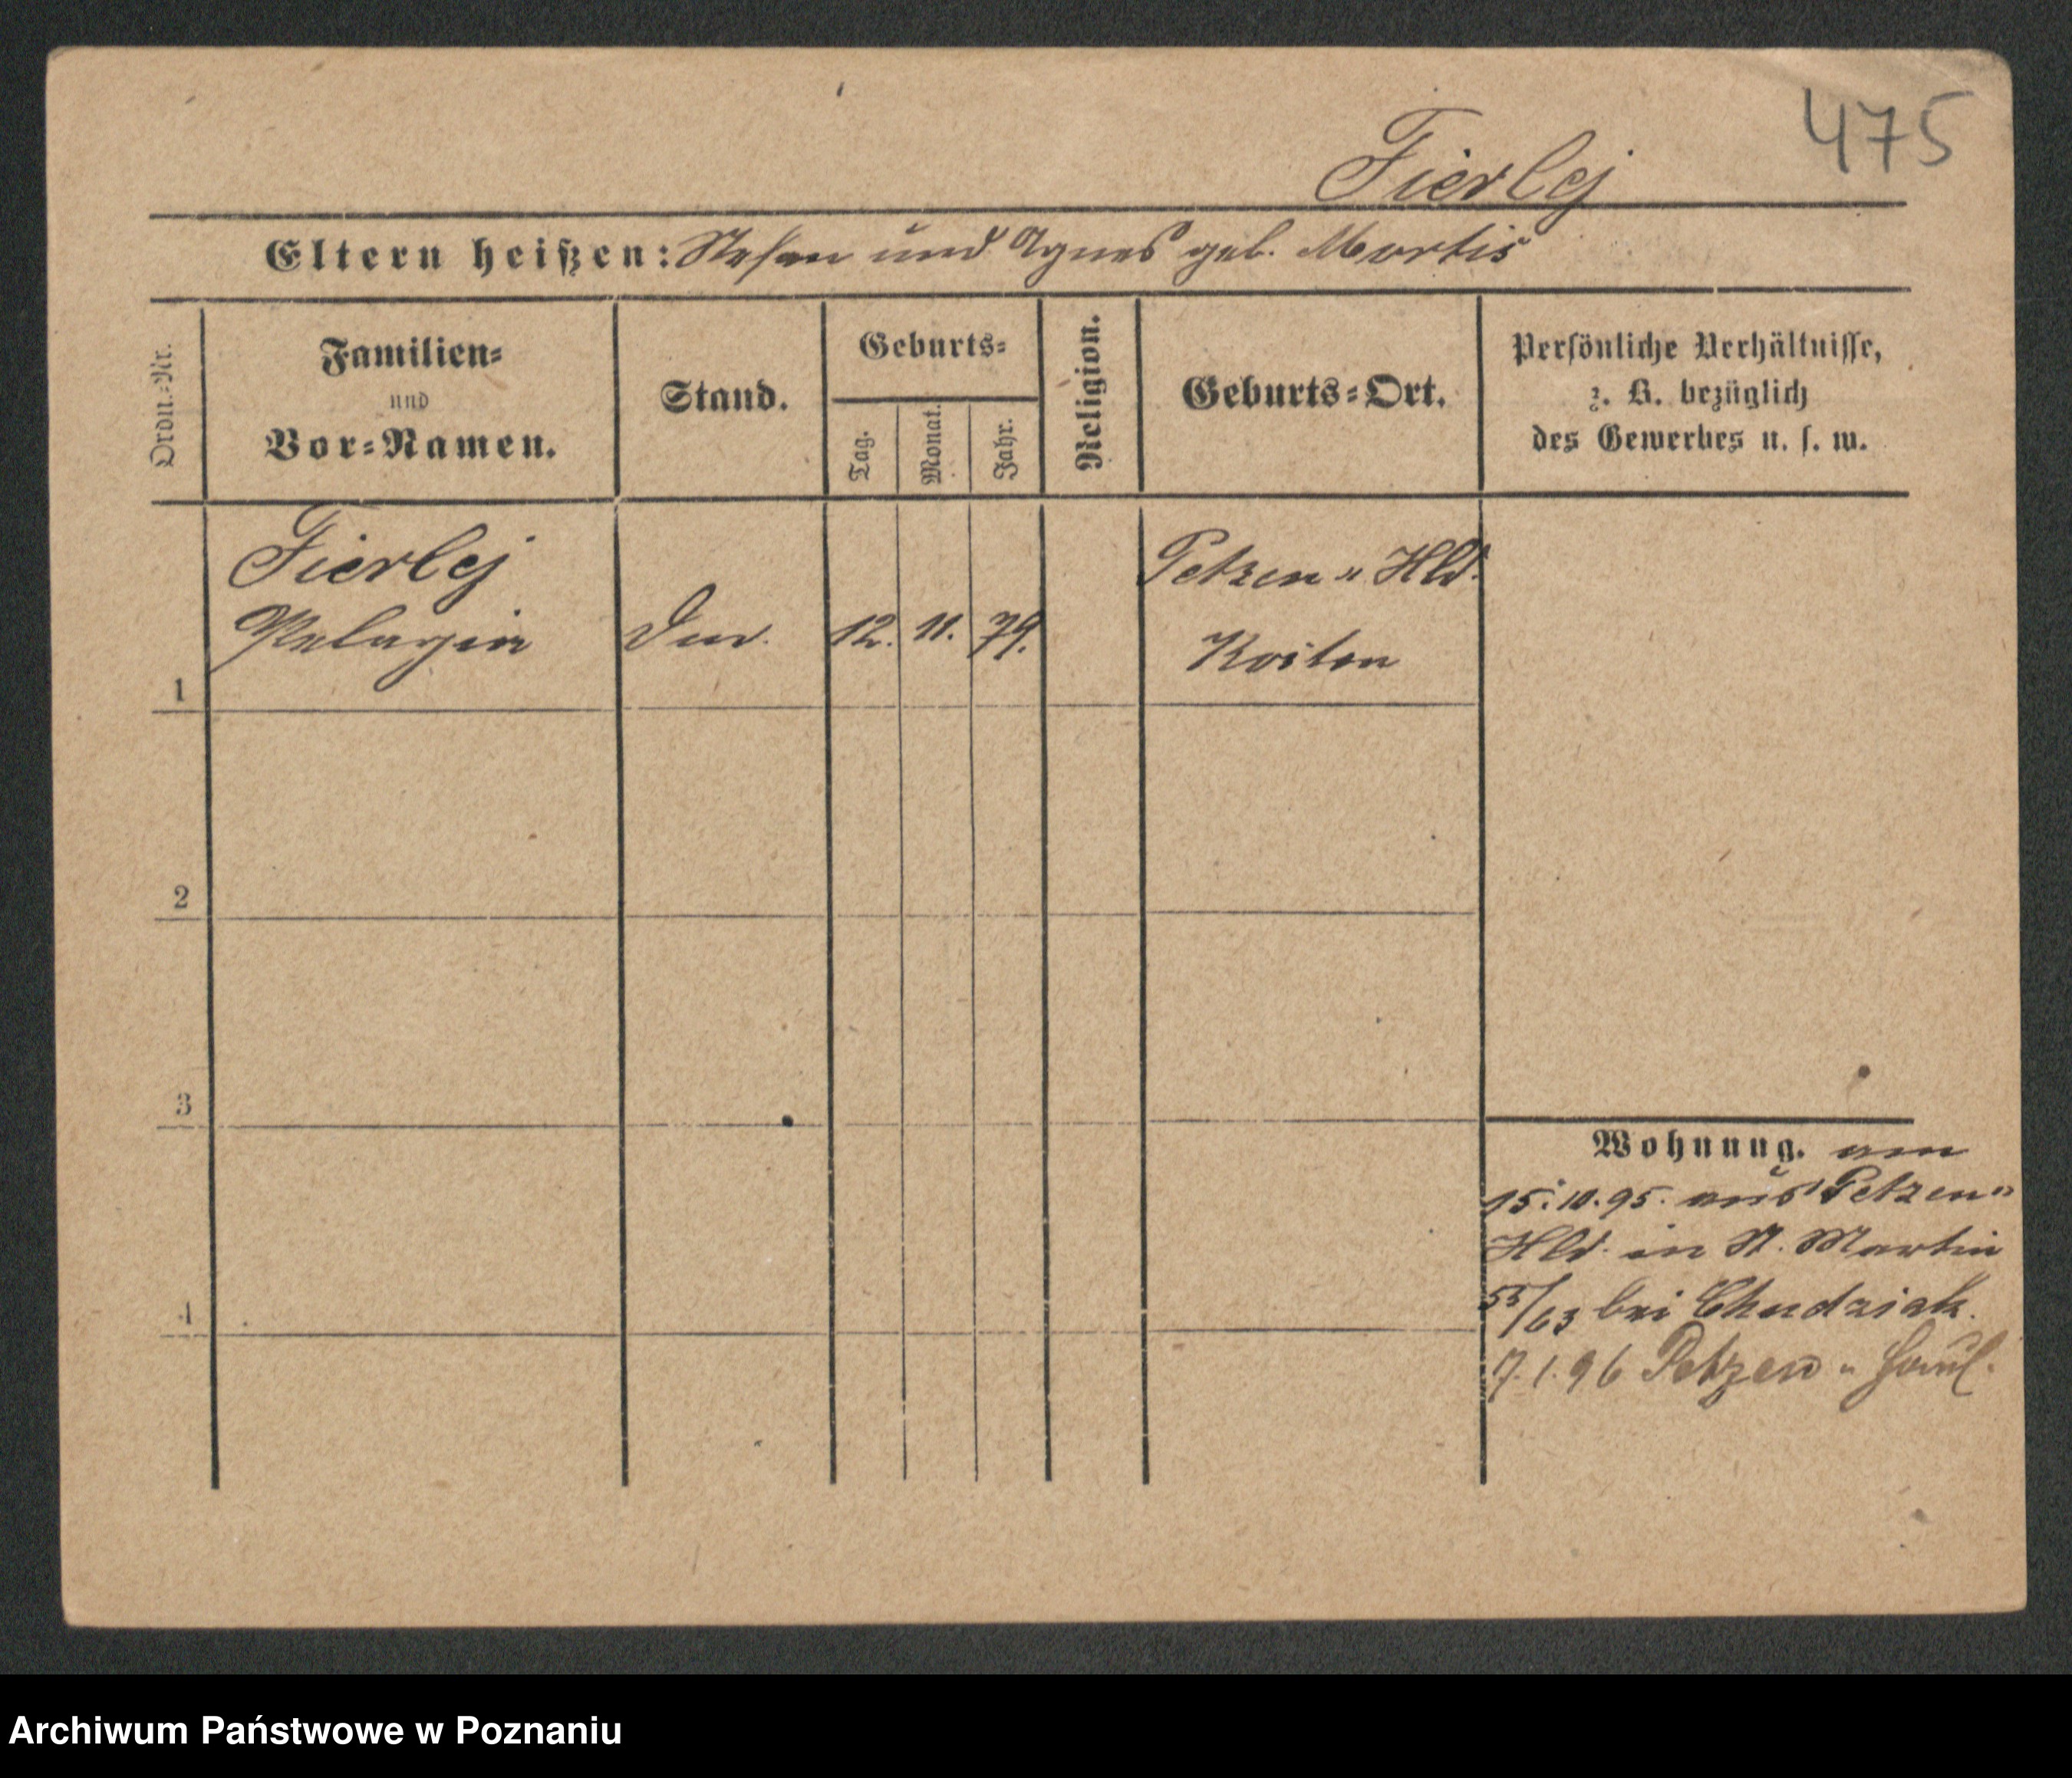 475
Fierlej
Eltern heißen: Stefan und Agnes geb. Martis
Ordn.-Nr.
Familien-
und
Vor-Namen.
Stand.
Geburts-
Tag.
Monat.
Jahr.
Religion.
Geburts-Ort.
Persönliche Verhältnisse,
z. B. bezüglich
des Gewerbes u. s. w.
Fierlej
Pelagia
12. 11. 79.
Petzen " Hld.
Kosten
1
2
3
4
Wohnung. am
15. 10. 95. aus Petzen "
Hld. in St. Martin
55/63 bei Chudziak.
7. 1. 96 Petzen "
Archiwum Państwowe w Poznaniu